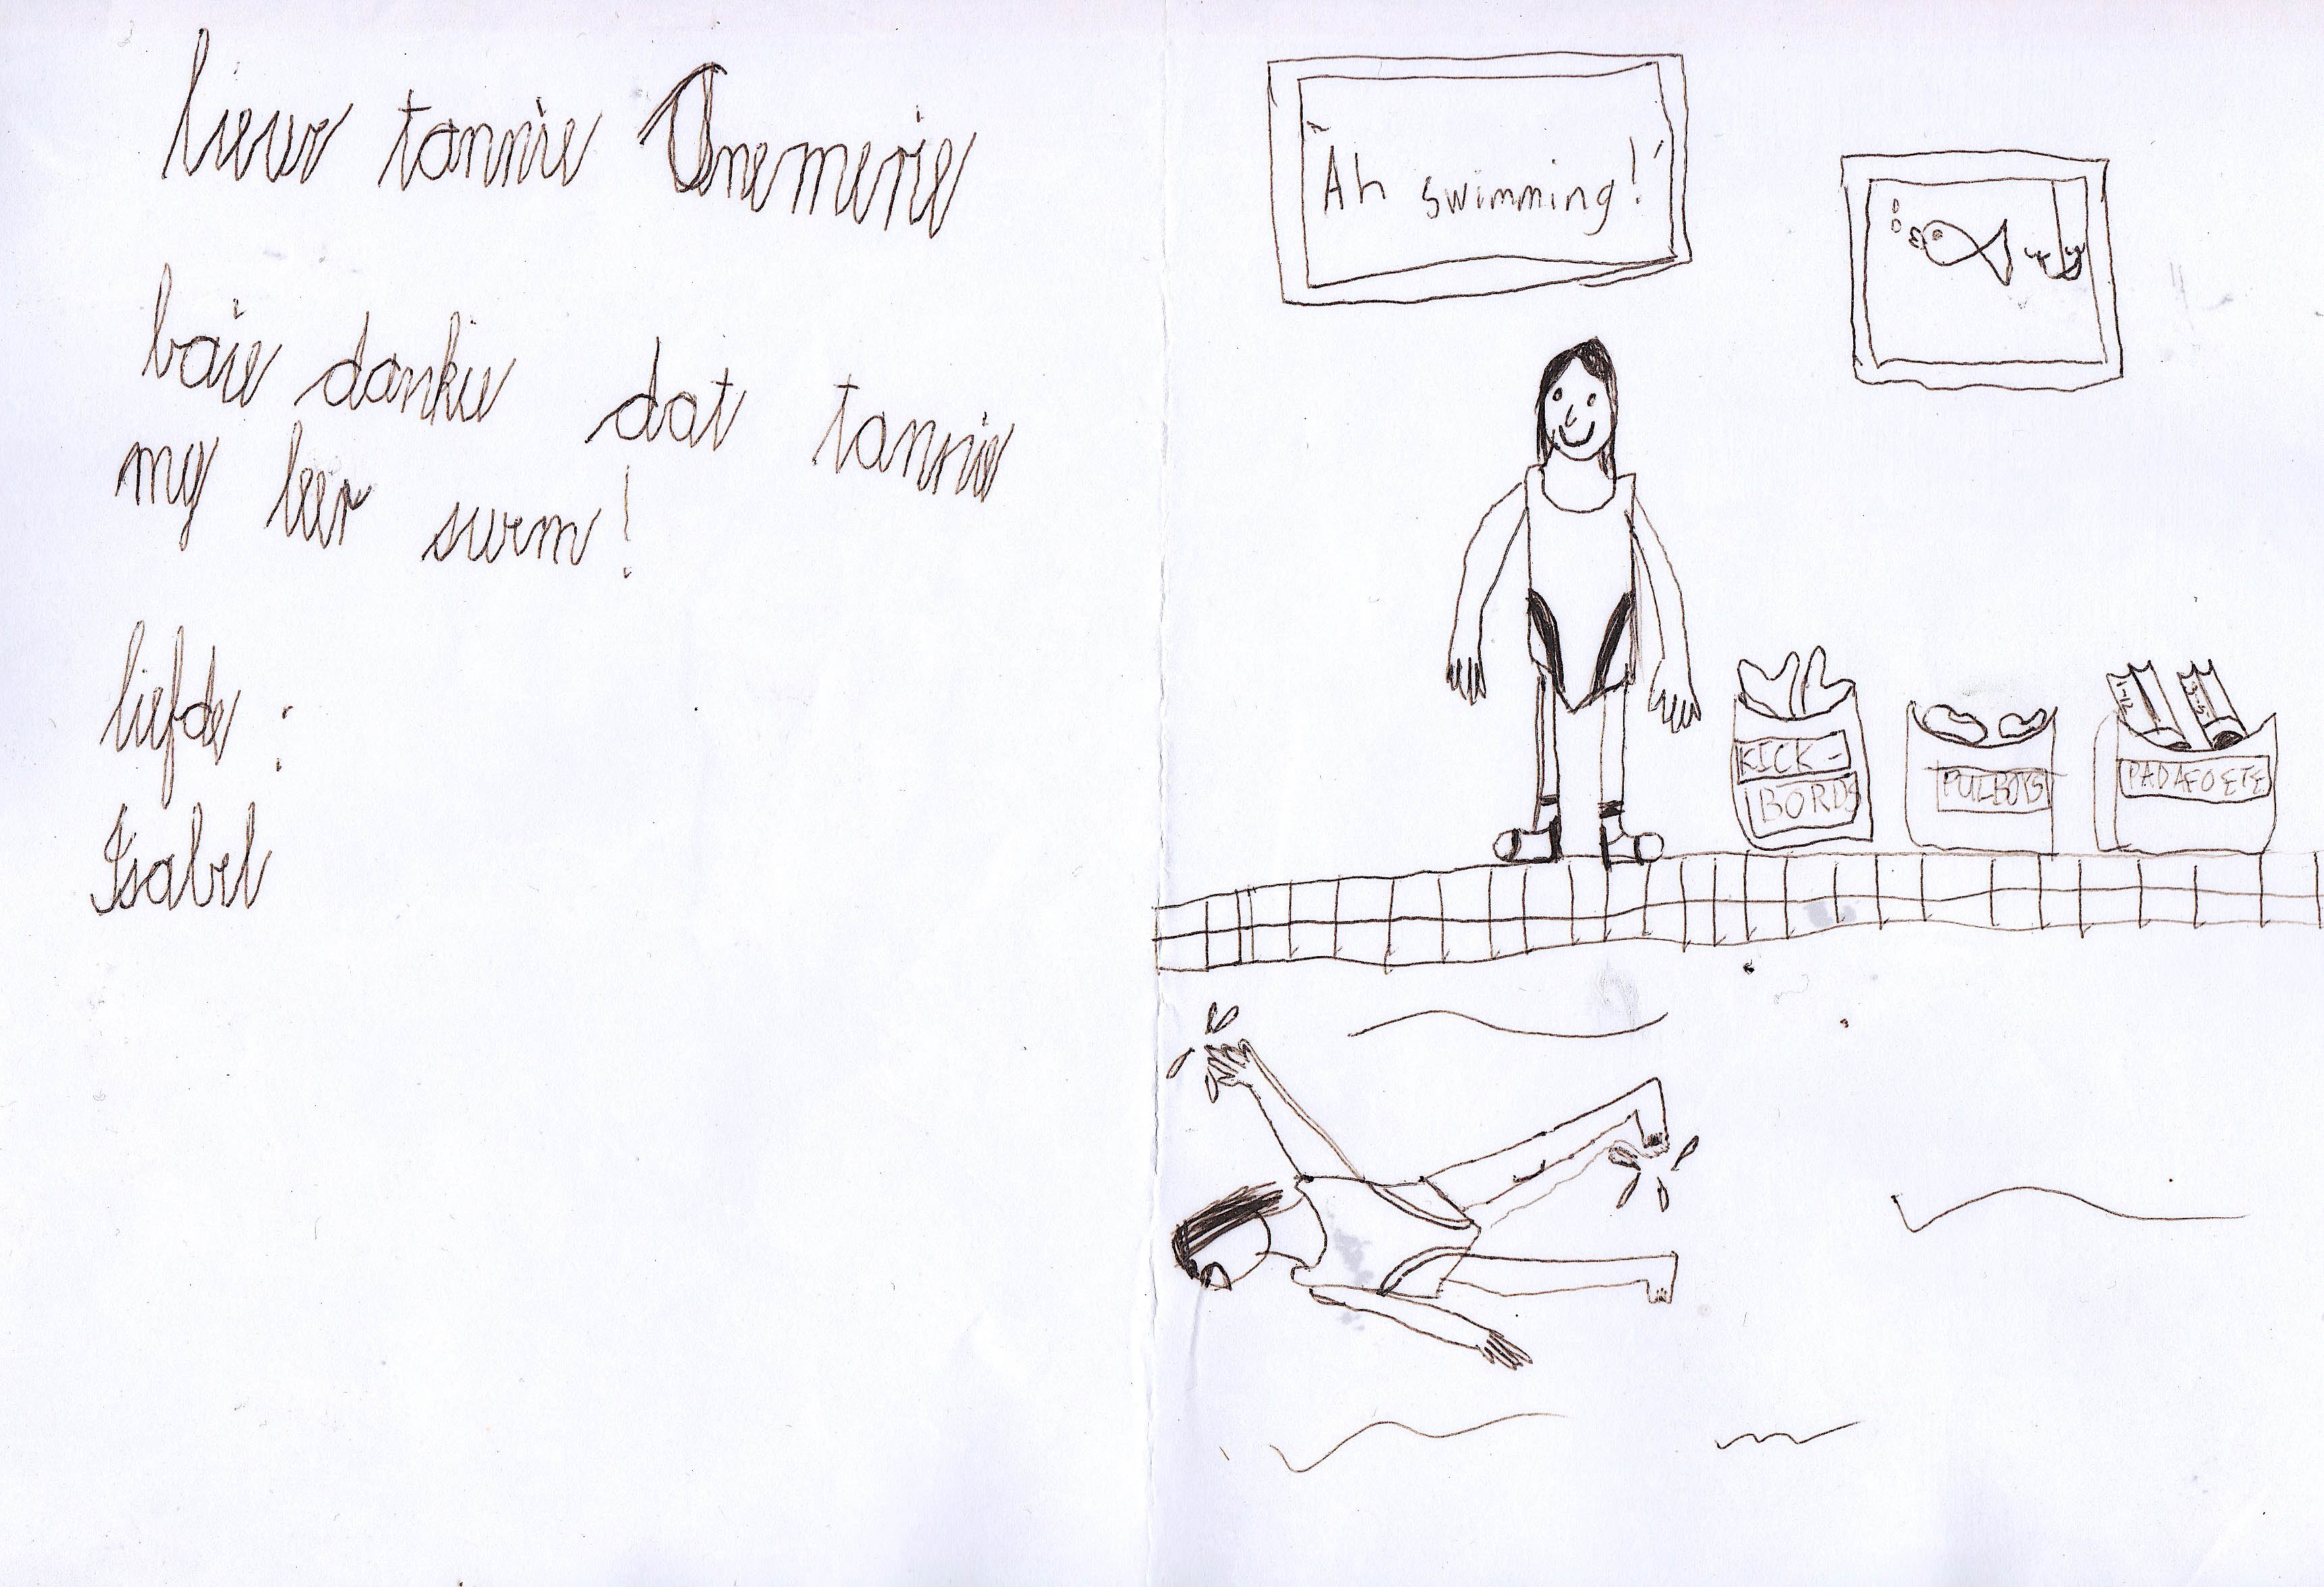 liewe tannie Anemerie
baie dankie dat tannie
my leer swem!
liefde :
Isabel
Ah swimming!
KICK-
BORDS
PULBOIS
PADAFOETE